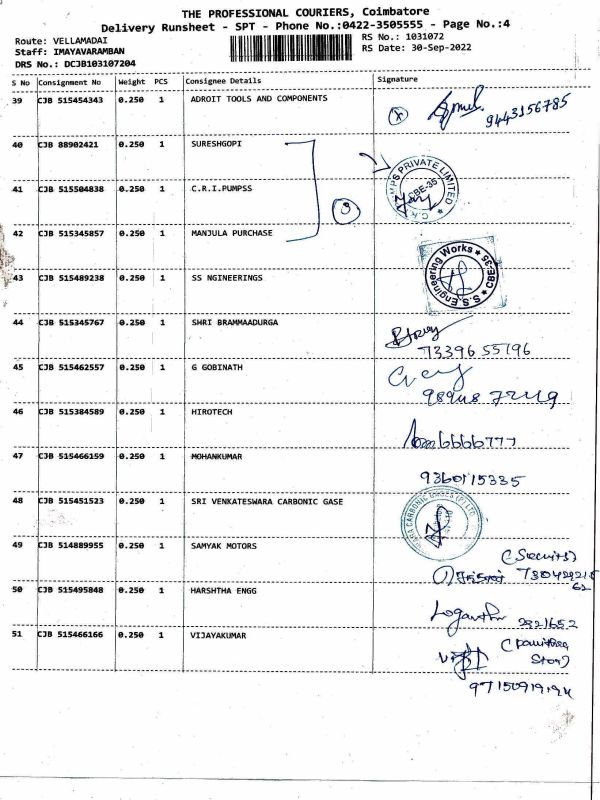 THE PROFESSIONAL COURIERS, Coimbatore
Delivery Runsheet - SPT - Phone No.:0422-3505555 - Page No.:4
Route: VELLAMADAI
RS No.: 1031072
Staff: IMAYAVARAMBAN
RS Date: 30-Sep-2022
DRS No.: DCJB103107204
S No Consignment No Weight PCS Consignee Details Signature
39 CJB 515454343 0.250 1 ADROIT TOOLS AND COMPONENTS
9443156785
40 CJB 88902421 0.250 1 SURESHGOPI
41 CJB 515504838 0.250 1 C.R.I.PUMPSS
PRIVATE LIMITED
CBE-35
3
42 CJB 515345857 0.250 1 MANJULA PURCHASE
43 CJB 515489238 0.250 1 SS NGINEERINGS
S.S. Engineering Works * CBE-35
44 CJB 515345767 0.250 1 SHRI BRAMMAADURGA
73396 55796
45 CJB 515462557 0.250 1 G GOBINATH
46 CJB 515384589 0.250 1 HIROTECH
47 CJB 515466159 0.250 1 MOHANKUMAR
9360115335
48 CJB 515451523 0.250 1 SRI VENKATESWARA CARBONIC GASE
CARBONIC GASES (P) LTD
49 CJB 514889955 0.250 1 SAMYAK MOTORS
50 CJB 515495848 0.250 1 HARSHTHA ENGG
51 CJB 515466166 0.250 1 VIJAYAKUMAR